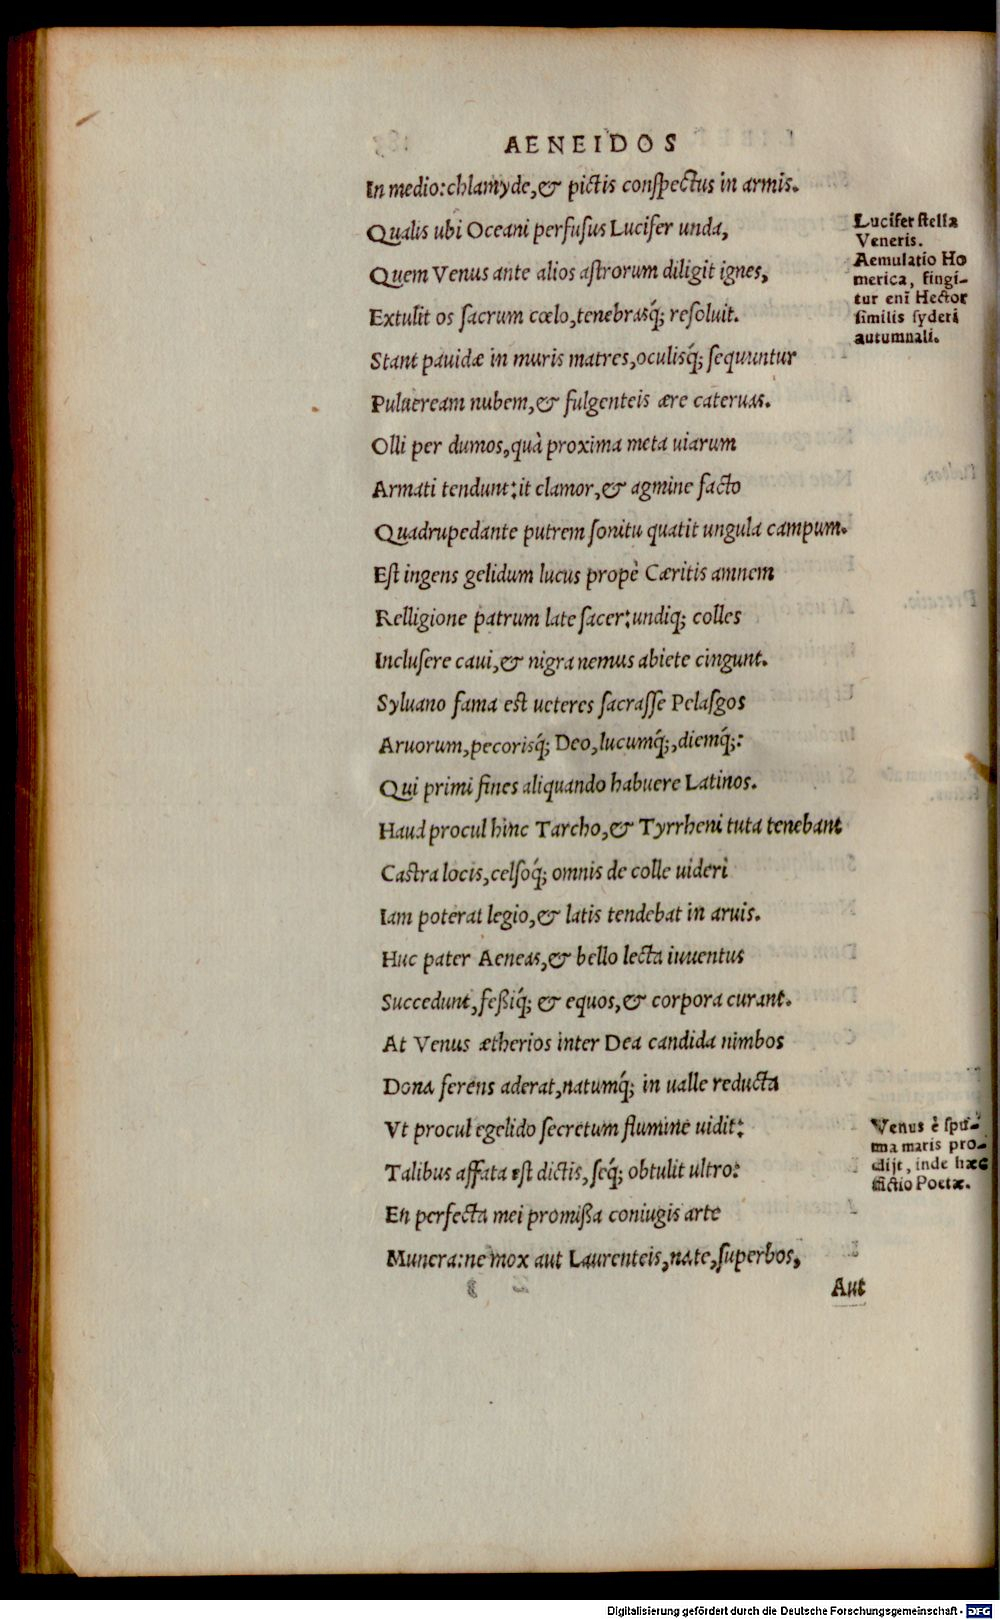 AENEIDOS
In medio: chlamyde, & pictis conſpectus in armis.
Qualis ubi Oceani perfuſus Lucifer unda,
Quem Venus ante alios aſtrorum diligit ignes,
Extulit os ſacrum cœlo, tenebrasq́; reſoluit.
Stant pauidæ in muris matres, oculisq́; ſequuntur
Pulueream nubem, & fulgenteis ære cateruas.
Olli per dumos, quà proxima meta uiarum
Armati tendunt: it clamor, & agmine facto
Quadrupedante putrem ſonitu quatit ungula campum.
Eſt ingens gelidum lucus propè Cæritis amnem
Relligione patrum late ſacer: undiq; colles
Incluſere caui, & nigra nemus abiete cingunt.
Syluano fama eſt ueteres ſacraſſe Pelaſgos
Aruorum, pecorisq́; Deo, lucumq́;, diemq́;:
Qui primi fines aliquando habuere Latinos.
Haud procul hinc Tarcho, & Tyrrheni tuta tenebant
Caſtra locis, celſoq́; omnis de colle uideri
Iam poterat legio, & latis tendebat in aruis.
Huc pater Aeneas, & bello lecta iuuentus
Succedunt, feßiq́; & equos, & corpora curant.
At Venus ætherios inter Dea candida nimbos
Dona ferens aderat, natumq́; in ualle reducta
Vt procul egelido ſecretum flumine uidit:
Talibus affata eſt dictis, ſeq́; obtulit ultro:
En perfecta mei promißa coniugis arte
Munera: ne mox aut Laurenteis, nate, ſuperbos,
Aut
Lucifer ſtella
Veneris.
Aemulatio Ho
merica, fingi-
tur enī Hector
ſimilis ſyderi
autumnali.
Venus è ſpu-
ma maris pro-
dijt, inde hæc
fictio Poetæ.
Digitalisierung gefördert durch die Deutsche Forschungsgemeinschaft - DFG